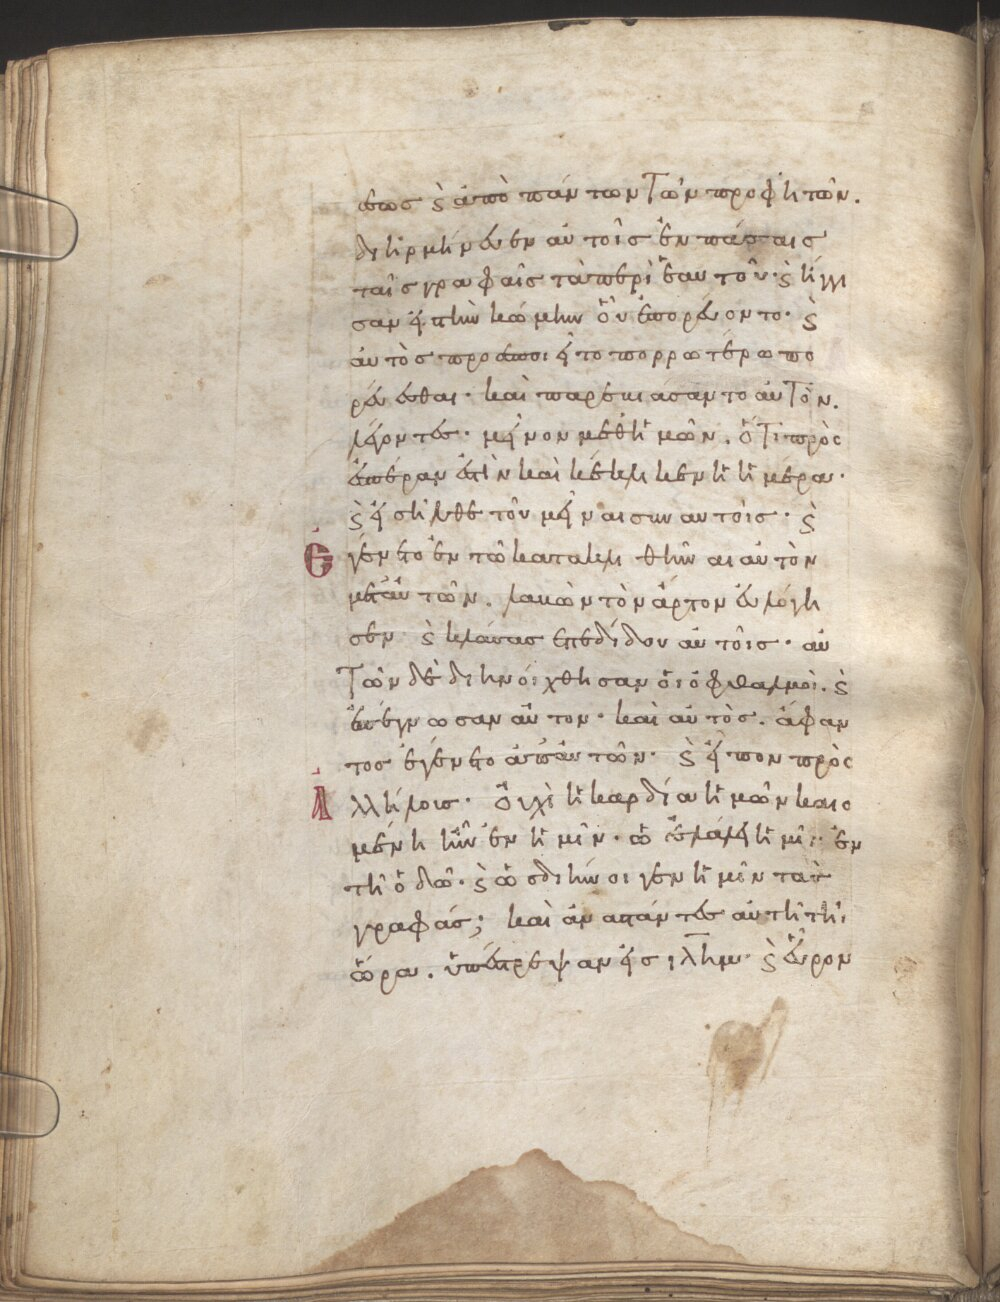 σέως ϗ ἀπὸ πάντων τῶν προφητῶν.
διηρμήνευεν αὐτοῖς ἐν πάσαις
ταῖς γραφαῖς τὰ περὶ ἑαυτοῦ· ϗ ἤγγι
σαν εἰς τὴν κώμην οὗ ἐπορεύοντο· ϗ
αὐτὸς προσεποιεῖτο πορρωτέρω πο
ρεύεσθαι· καὶ παρεβιάσαντο αὐτὸν.
λέγοντες· μεῖνον μεθ' ἡμῶν. ὅτι πρὸς
ἑσπέραν ἐστὶν καὶ κέκλικεν ἡ ἡμέρα·
ϗ εἰσῆλθε τοῦ μεῖναι συν αυτοῖς· ϗ
ἐγένετο ἐν τῶ κατακλιθῆναι αὐτὸν
μετ' αὐτῶν. λαβὼν τὸν ἄρτον εὐλόγη
σεν· ϗ κλάσας ἐπεδίδου αὐτοῖς· αὐ
τῶν δὲ διηνοίχθησαν οἱ ὀφθαλμοὶ. ϗ
ἐπέγνωσαν αὐτον· καὶ αὐτὸς. ἄφαν
τος ἐγένετο ἀπ' αὐτῶν· ϗ εἶπον πρὸς
ἀλλήλοις· Οὐχὶ ἡ καρδία ἡμῶν καιο
μένη ἦν ἐν ἡμῖν· ὡς ἐλάλει ἡμῖν· ἐν
τῆ ὁδῶ· ϗ ὡς διήνοιγεν ἡμῖν τας
γραφάς; καὶ ἀναστάντες αὐτῆ τῆ
ὥρα. ὑπέστρεψαν εἰς ιλημ· ϗ εὗρον